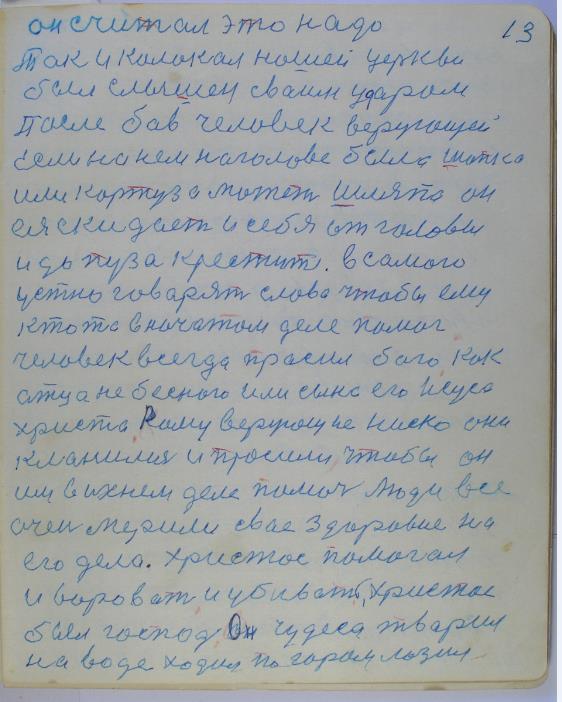 он считал это надо 13
Так и колокал нашей церкви
был слышен сваим ударом
После бав человек верующей
Если на нем наголове была шапка
или картуз а может шляпа он
ея скидает и себя от головы
и до пуза крестит. в самого
устно говарят слова чтобы ему
ктота вначатом деле помог
человек всегда прасил бога как
атца небесного или сына его Исуса
христа кому верующие ниско они
кланилия и просили чтобы он
им в ихнем деле помоч Люди все
очен мерили свае здоровие на
его дела. Христос помогал
и вороват и убиват, Христос
был господ Он чудеса тварил
на воде ходил по горам лазил